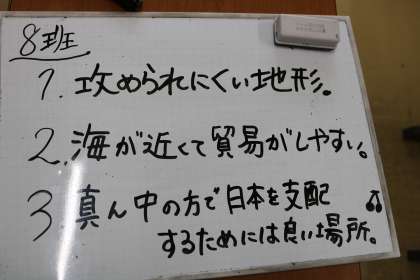 8班
1. 攻められにくい地形。
2. 海が近くて貿易がしやすい。
3. 真ん中の方で日本を支配
するためには良い場所。